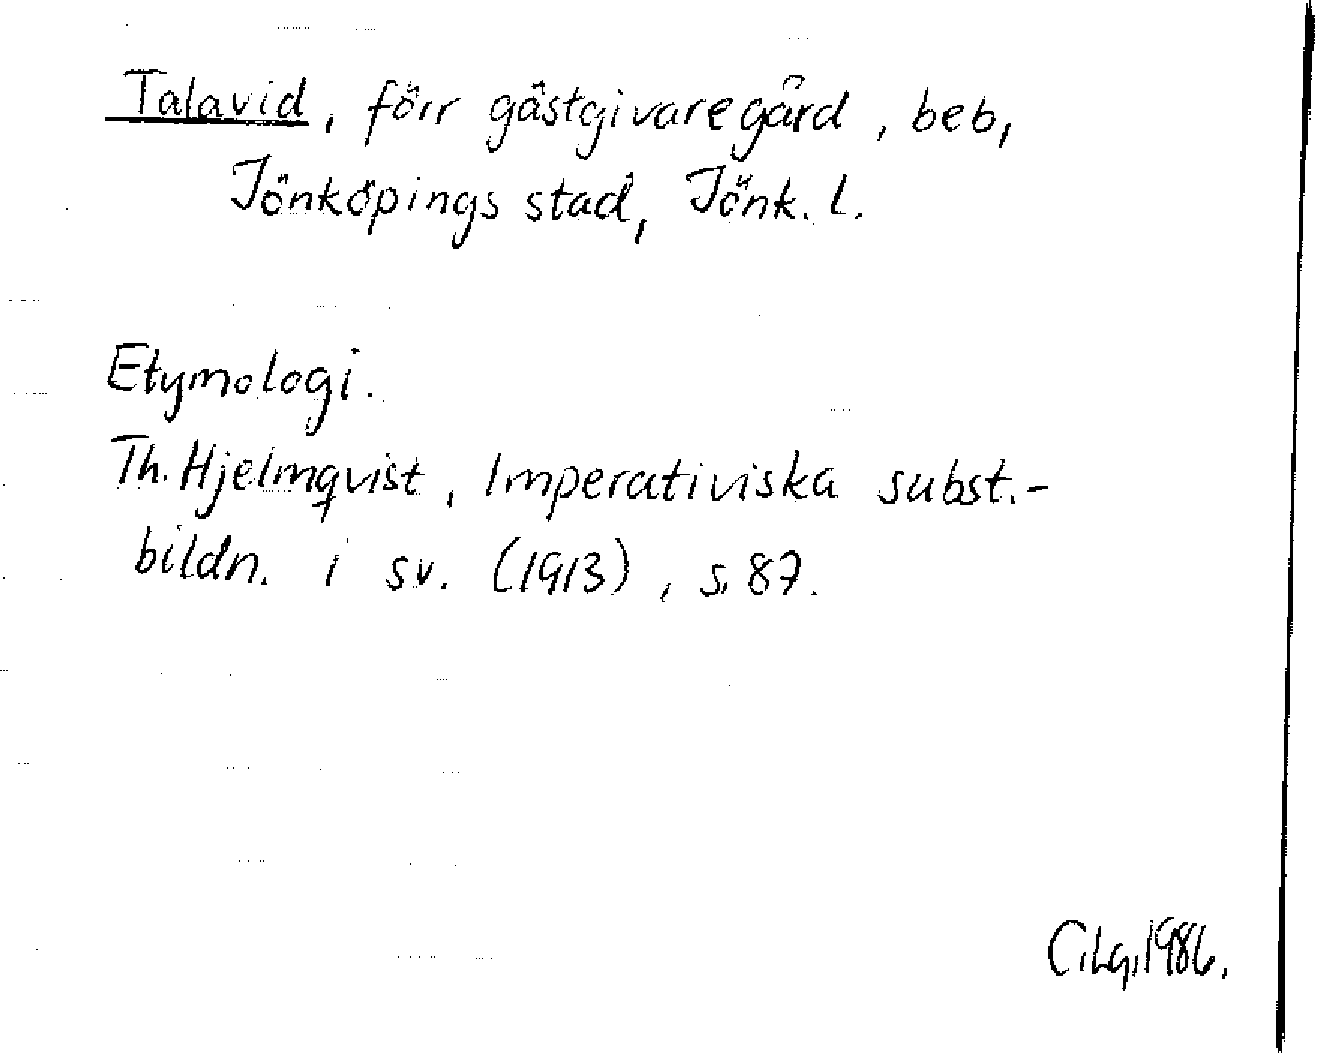 Talavid, förr gästgivaregård, beb,
Jönköpings stad, Jönk. l.
Etymologi.
Th. Hjelmqvist, Imperativiska subst.-
bildn. i sv. (1913), s. 87.
1986.